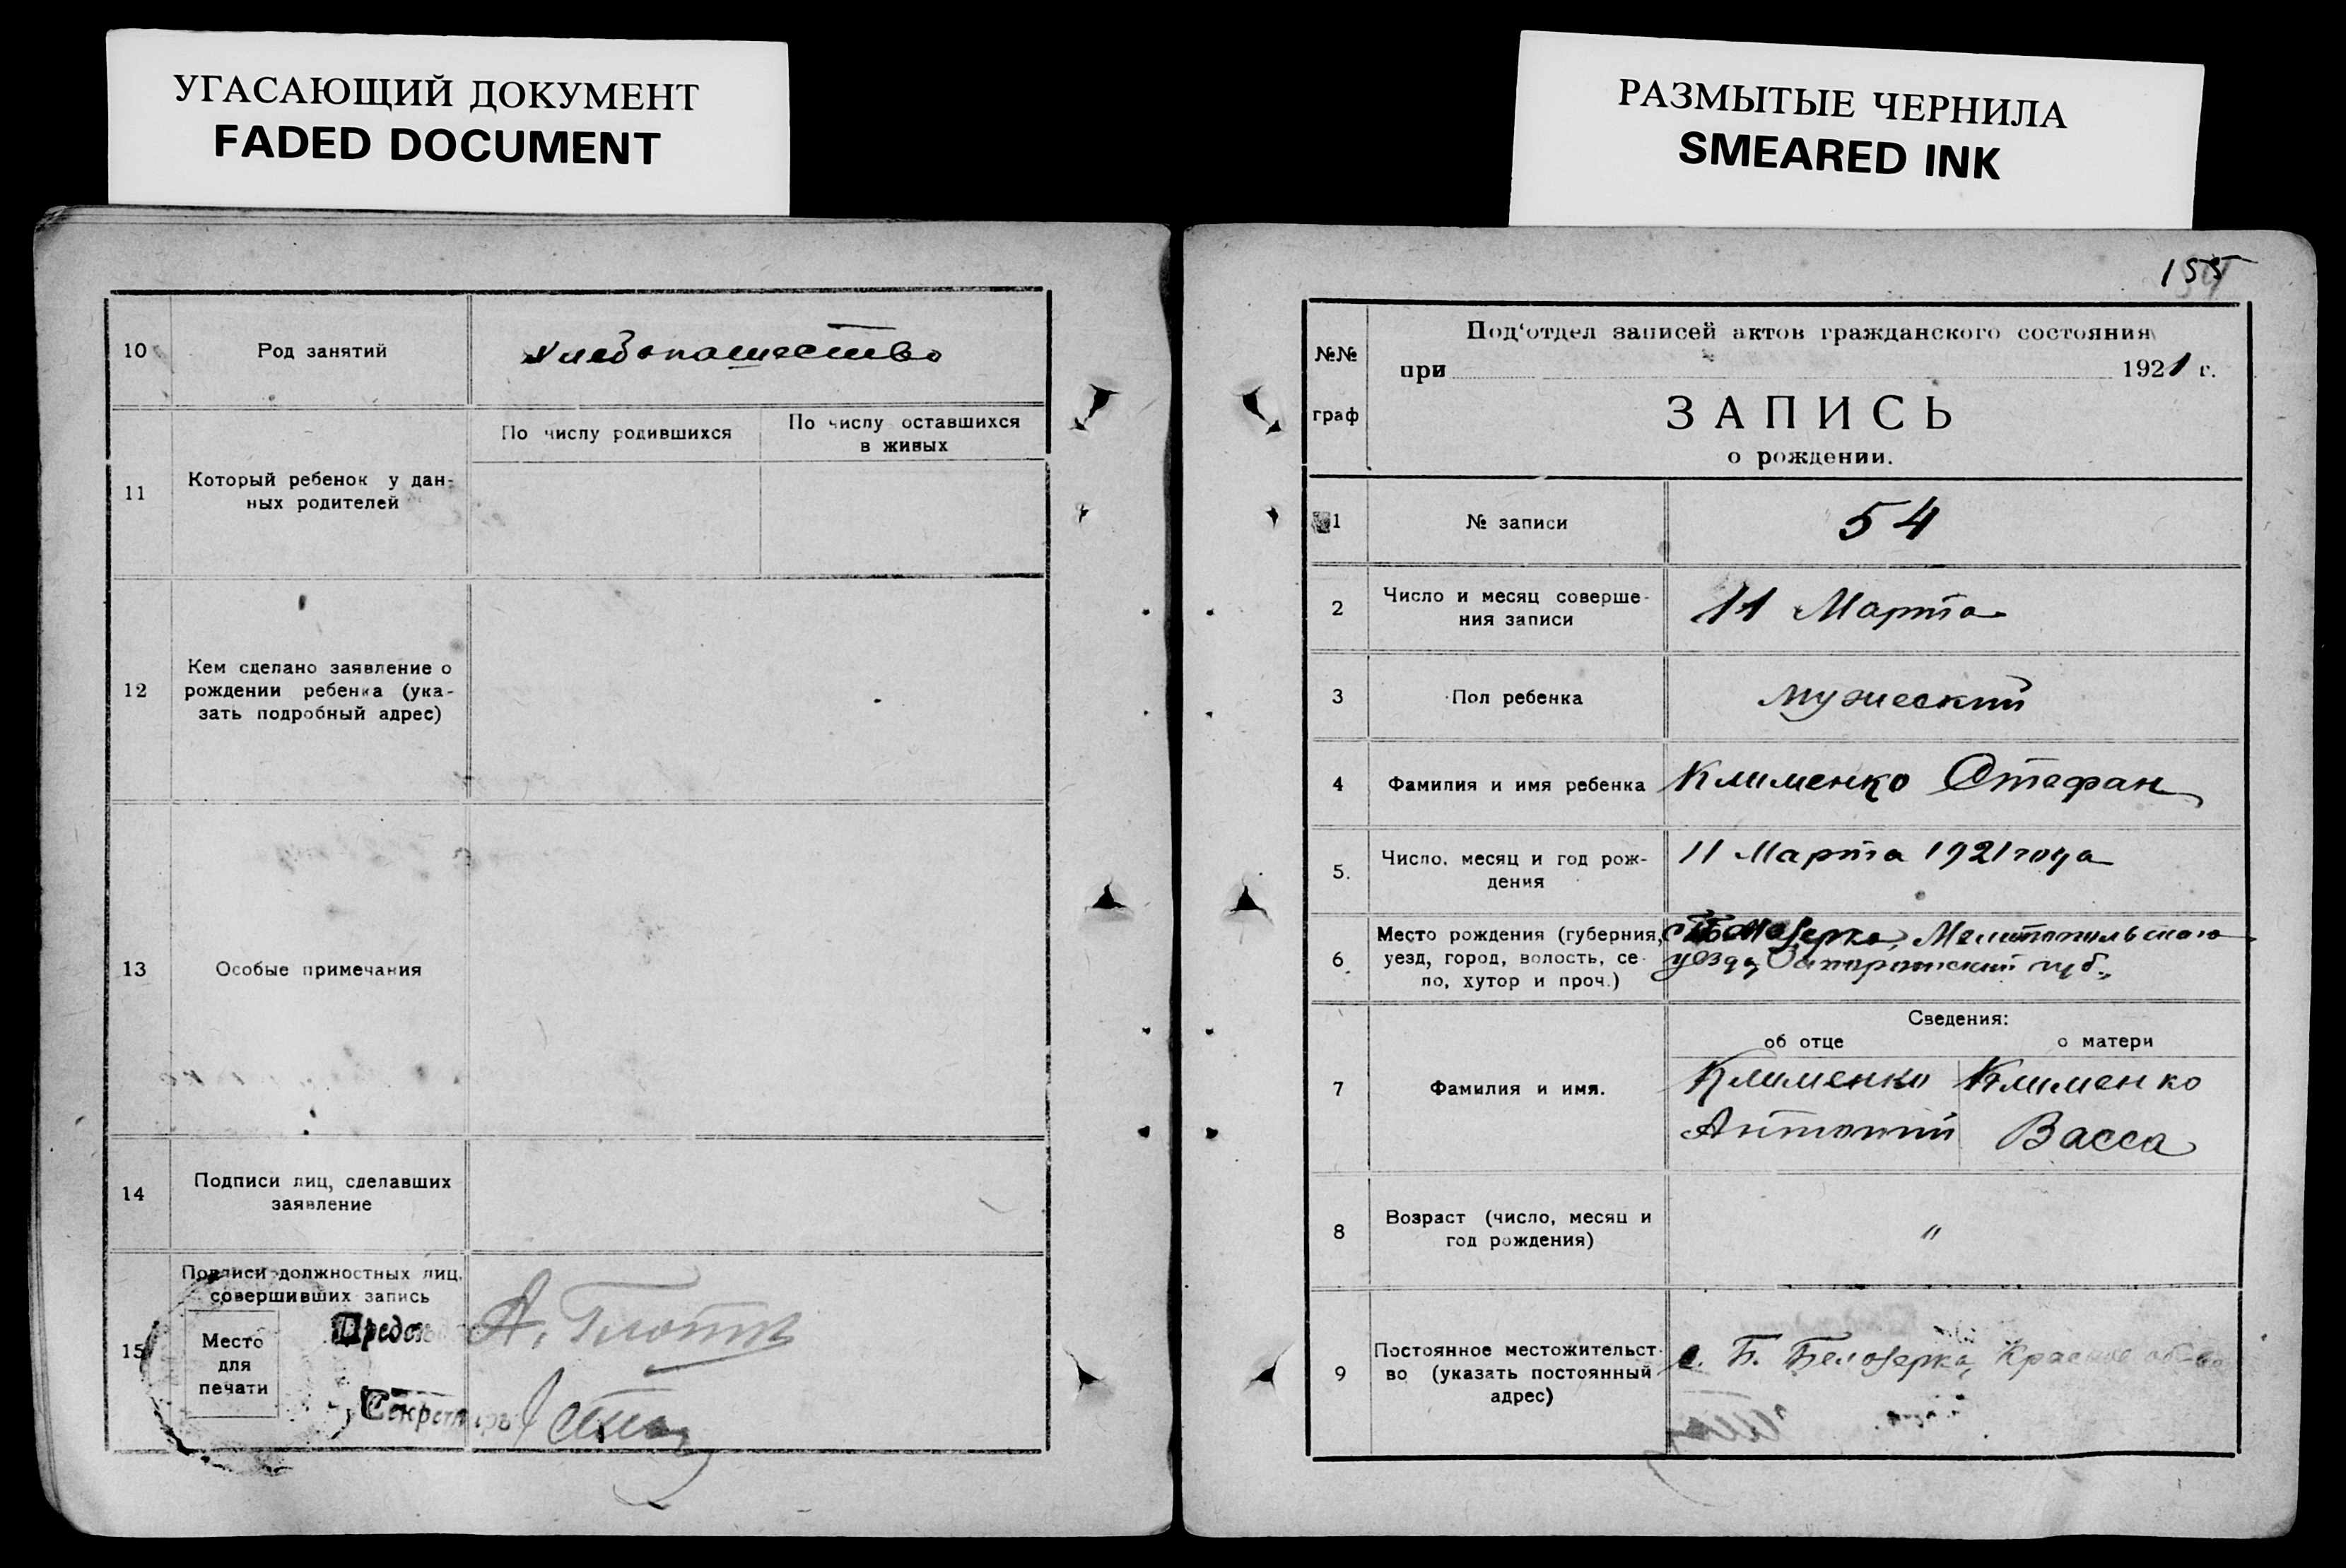 УГАСАЮЩИЙ ДОКУМЕНТ
FADED DOCUMENT
10 Род занятий хлебопашество
11 Который ребенок у дан-
ных родителей
По числу родившихся
По числу оставшихся
в живых
12 Кем сделано заявление о
рождении ребенка (ука-
зать подробный адрес)
13 Особые примечания
14 Подписи лиц, сделавших
заявление
15 Подписи должностных лиц,
совершивших запись
Место
для
печати
Секретарь
РАЗМЫТЫЕ ЧЕРНИЛА
SMEARED INK
155
№№
граф
Под'отдел записей актов гражданского состояния
при 1921 г.
ЗАПИСЬ
о рождении.
1 № записи 54
2 Число и месяц соверше-
ния записи
11 Марта
3 Пол ребенка мужеский
4 Фамилия и имя ребенка Клименко Стефан
5. Число, месяц и год рож-
дения
11 Марта 1921 года
6 Место рождения (губерния,
уезд, город, волость, се-
ло, хутор и проч.)
Мелитопольского
уезда Запорожский губ.,
Сведения:
об отце о матери
7 Фамилия и имя.
Клименко Клименко
Антоний Васса
8 Возраст (число, месяц и
год рождения)
"
9 Постоянное местожительст-
во (указать постоянный
адрес)
с. Б. Белозерка,